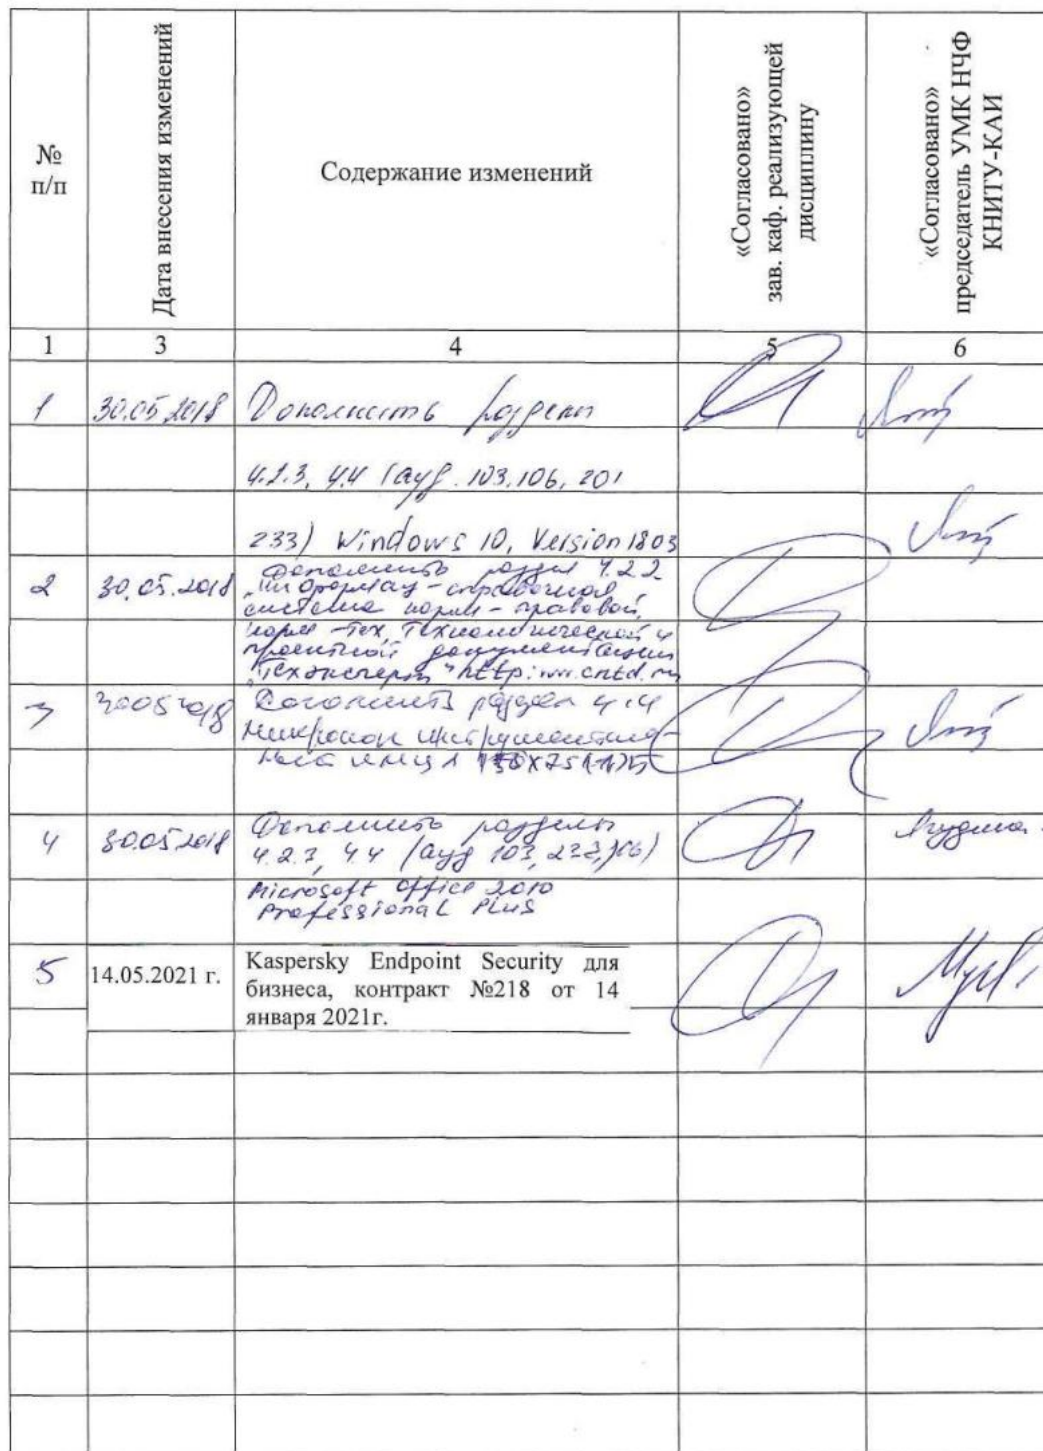 №
п/п
Дата внесения изменений
Содержание изменений
«Согласовано»
зав. каф. реализующей
дисциплину
«Согласовано»
председатель УМК НЧФ
КНИТУ-КАИ
1 3 4 5 6
1 30.05.2018 Дополнить разделы
4.2.3, 4.4 (ауд. 103, 106, 201
233) Windows 10, Version 1803
2 30.05.2018 Дополнить раздел 4.2.2
"Информац-справочная
система норм-правовой,
норм-тех, технологической и
проектной документации
"Техэксперт" http:
3 30052018 Дополнить раздел 4.4
Микроскоп инструментальный
4 30.05.2018 Дополнить разделы
4.2.3, 4.4 (ауд 103,
Microsoft Office 2010
Professional Plus
5 14.05.2021 г. Kaspersky Endpoint Security для
бизнеса, контракт №218 от 14
января 2021г.